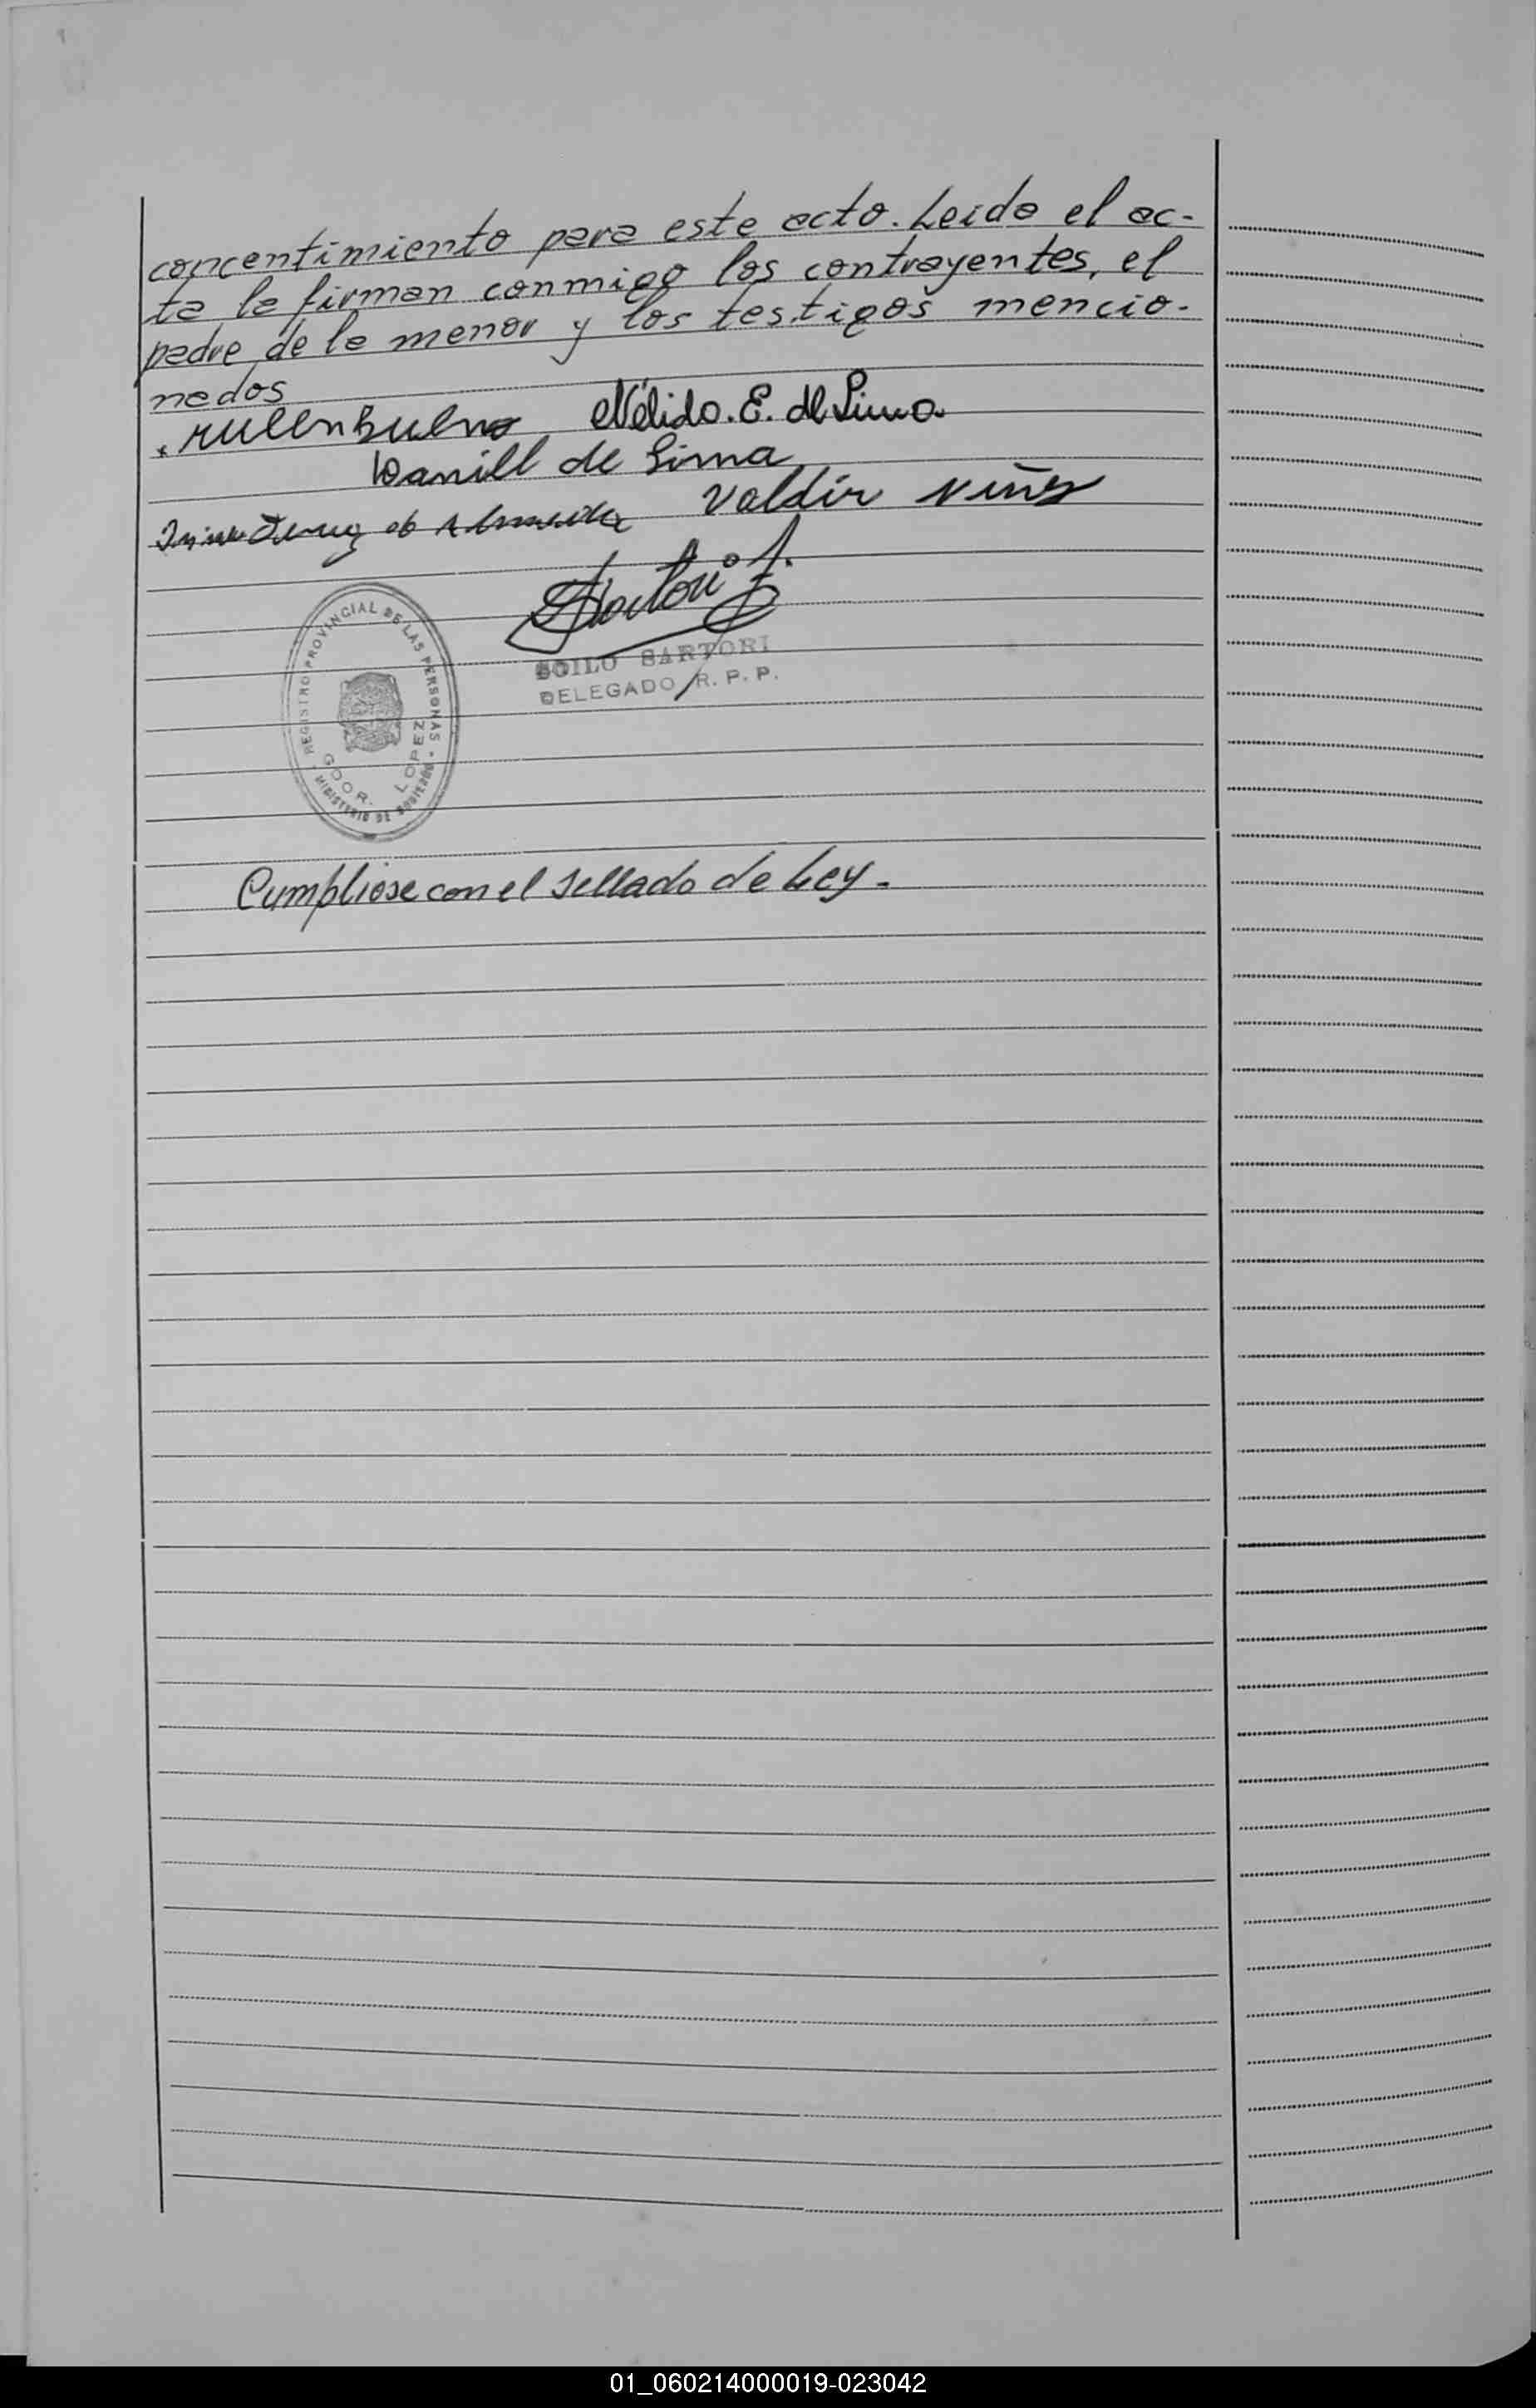 concentimiento para este acto. Leida el ac-
ta la firman conmigo los contrayentes, el
padre de la menor y los testigos mencio-
nados
Nélida. E. de Lima
Daniel de Lima
Valdir Niñez
Sartori
SOILO SARTORI
DELEGADO R. P. P.
REGISTRO PROVINCIAL DE LAS PERSONAS
GDOR. LOPEZ
MINISTERIO DE GOBIERNO
Cumpliose con el sellado de Ley.
01_060214000019-023042